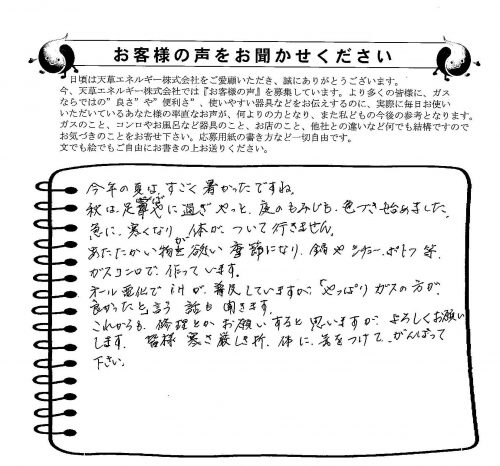 お客様の声をお聞かせください
日頃は天草エネルギー株式会社をご愛顧いただき、誠にありがとうございます。
今、天草エネルギー株式会社では『お客様の声』を募集しています。より多くの皆様に、ガス
ならではの”良さ”や”便利さ”、使いやすい器具などをお伝えするのに、実際に毎日お使い
いただいているあなた様の率直なお声が、何よりの力となり、また私どもの今後の参考となります。
ガスのこと、コンロやお風呂など器具のこと、お店のこと、他社との違いなど何でも結構ですので
お気づきのことをお寄せ下さい。応募用紙の書き方など一切自由です。
文でも絵でもご自由にお書きの上お送りください。
今年の夏は、すごく暑かったですね。
秋は、足早に過ぎやっと、庭のもみじも、色づき始めました。
急に、寒くなり、体が、ついて行きません。
あたたかい物が欲い季節になり、鍋やシチュー、ポトフ等、
ガスコンロで、作っています。
オール電化で IHが、普及していますが、「やっぱりガスの方が、
良かったと言う 話も聞きます。
これからも、修理とかお願いすると思いますが、よろしくお願い
します。 皆様 寒さ厳しき折、体に、気をつけて、がんばって
下さい。